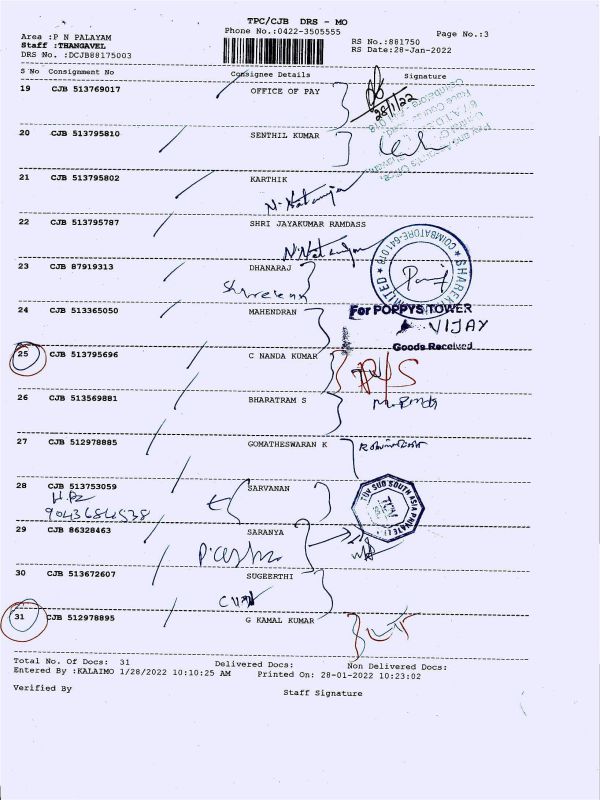 TPC/CJB DRS - MO
Phone No.:0422-3505555
Page No.:3
Area :P N PALAYAM
Staff :THANGAVEL
DRS No. :DCJB88175003
RS No.:881750
RS Date:28-Jan-2022
S No Consignment No Consignee Details Signature
19 CJB 513769017 OFFICE OF PAY
28/1/22
20 CJB 513795810 SENTHIL KUMAR
21 CJB 513795802 KARTHIK
N. Natarajan
22 CJB 513795787 SHRI JAYAKUMAR RAMDASS
N. Natarajan
COIMBATORE-641 018
23 CJB 87919313 DHANARAJ
24 CJB 513365050 MAHENDRAN
For POPPYS TOWER
VIJAY
Goods Received
25 CJB 513795696 C NANDA KUMAR
26 CJB 513569881 BHARATRAM S
27 CJB 512978885 GOMATHESWARAN K
28 CJB 513753059 SARVANAN
TUV SUD SOUTH ASIA PRIVATE LT
29 CJB 86328463 SARANYA
30 CJB 513672607 SUGEERTHI
31 CJB 512978895 G KAMAL KUMAR
Total No. Of Docs: 31 Delivered Docs: Non Delivered Docs:
Entered By :KALAIMO 1/28/2022 10:10:25 AM Printed On: 28-01-2022 10:23:02
Verified By Staff Signature